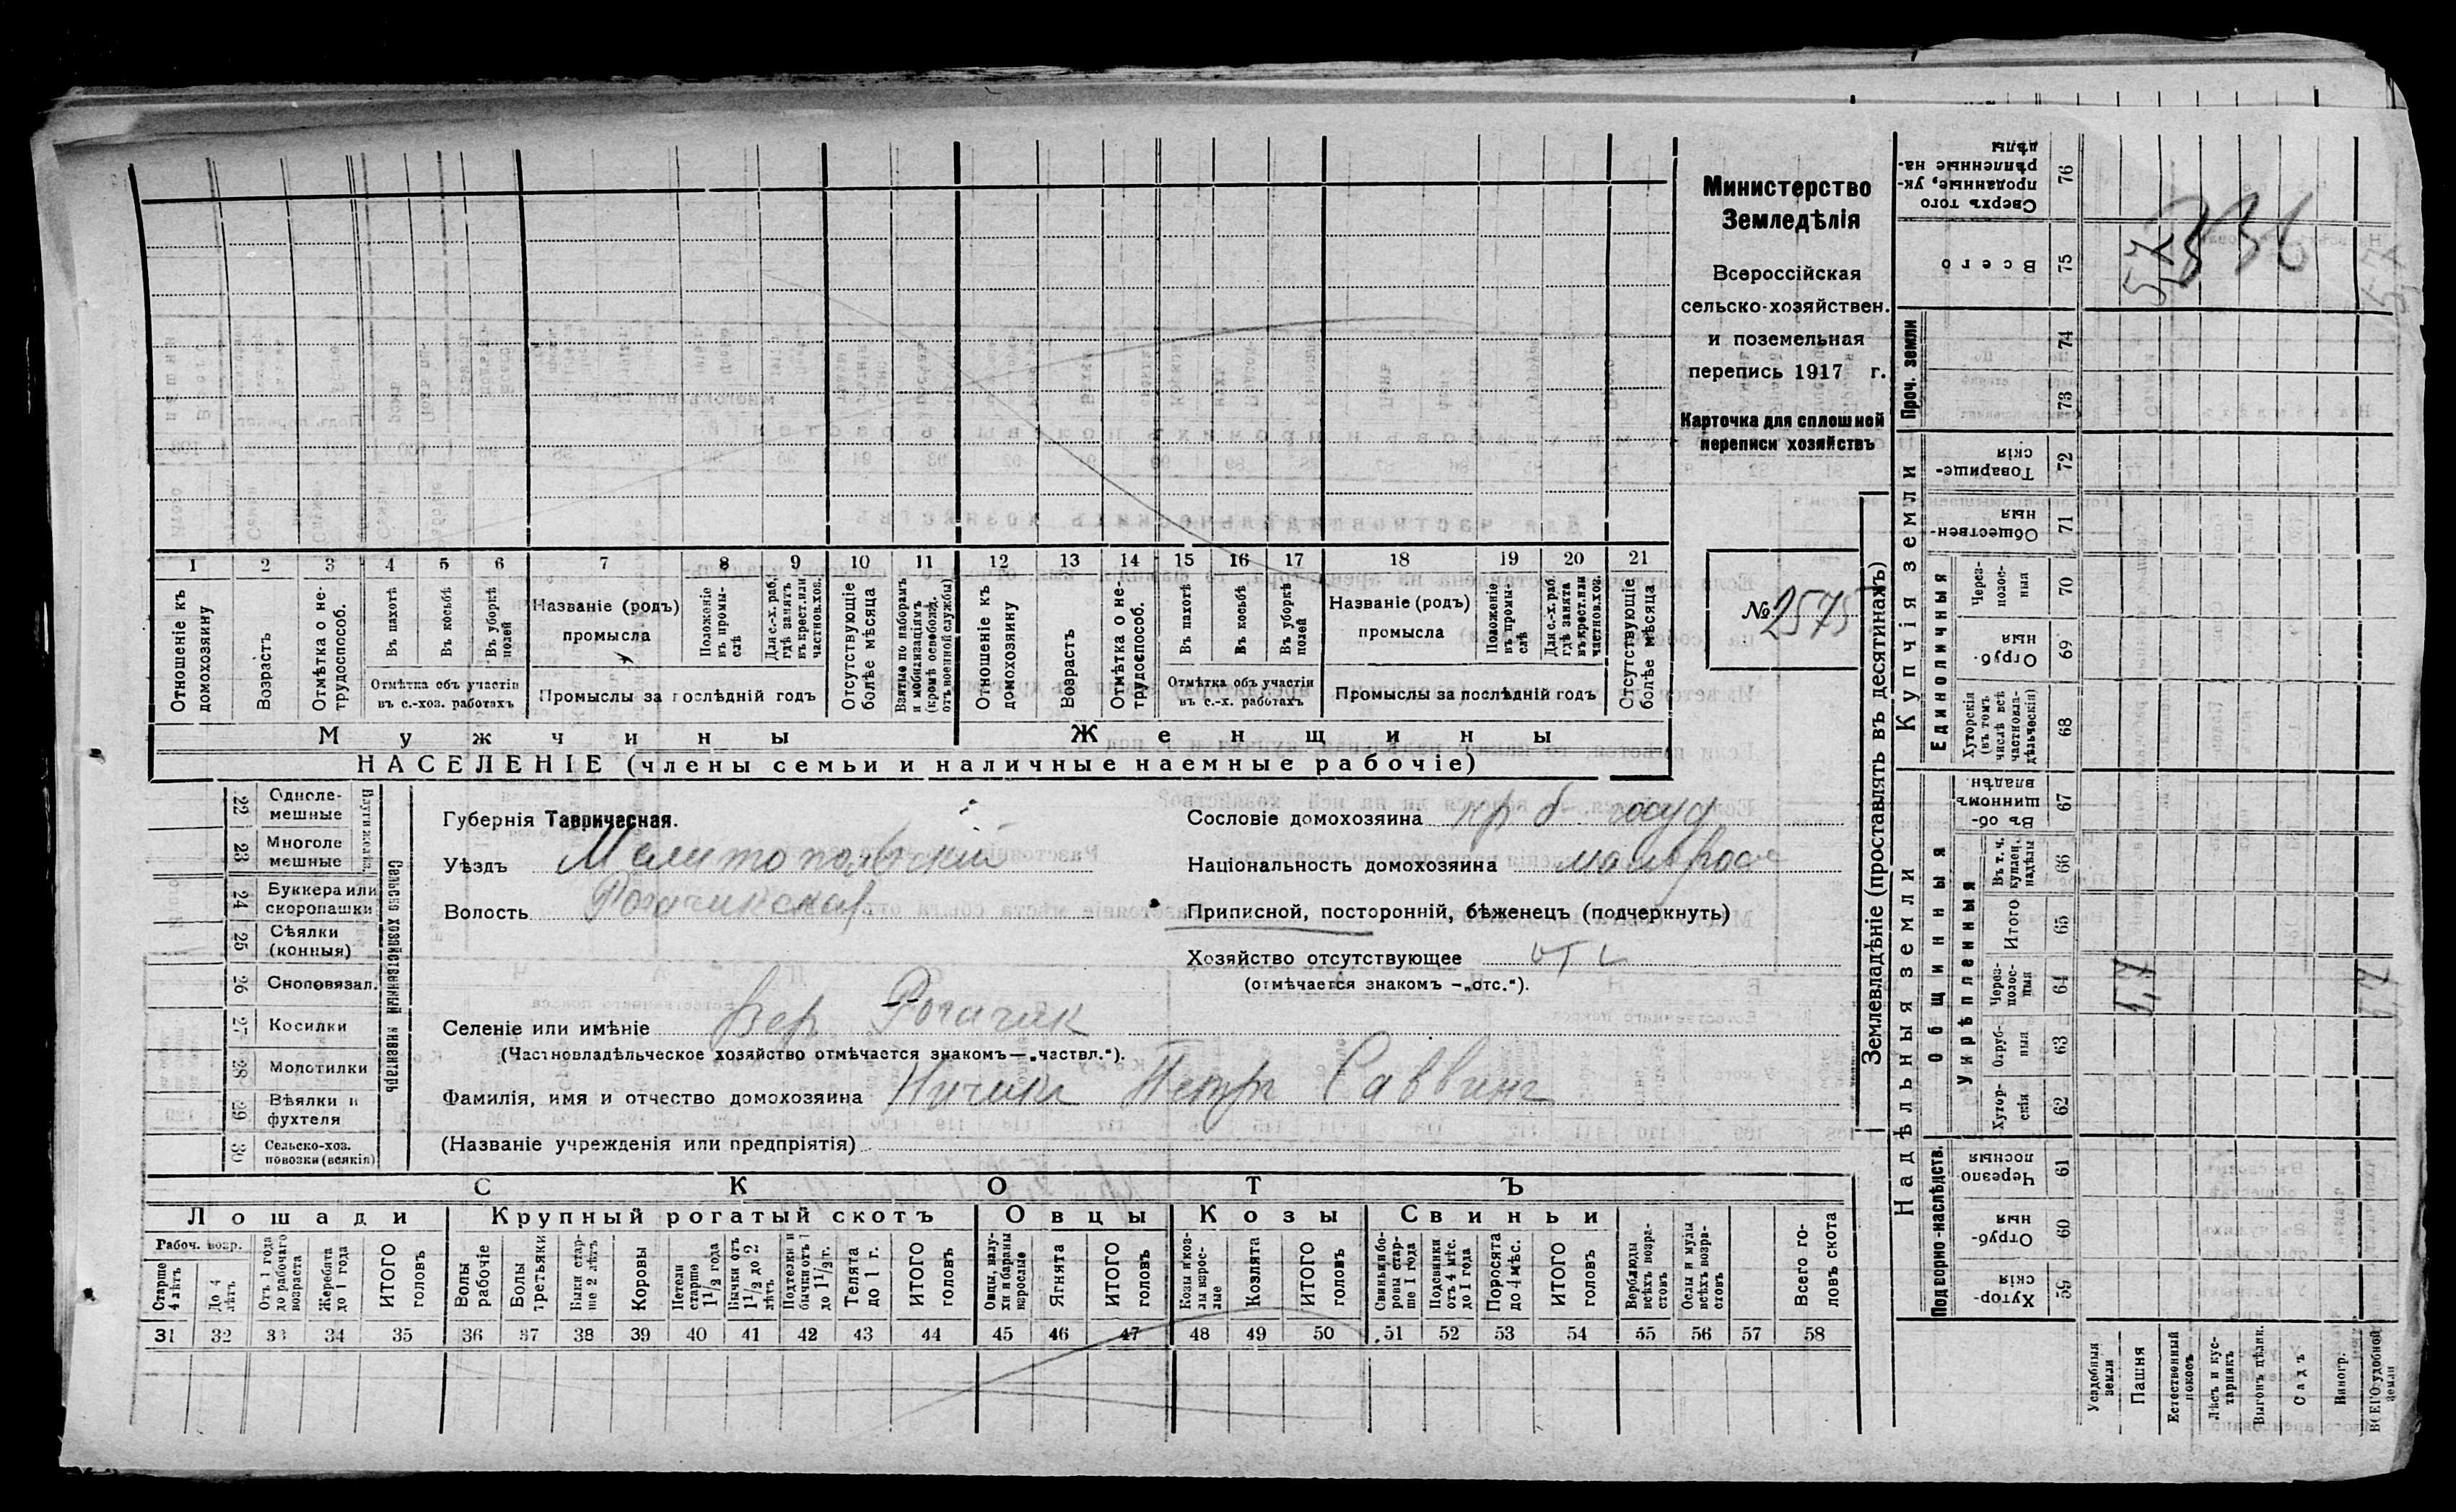 Министерство
Земледѣлія
Всероссійская
сельско-хозяйствен.
и поземельная
перепись 1917 г.
Карточка для сплошной
переписи хозяйствъ
№ 2575
1 2 3 4 5 6 7 8 9 10 11 12 13 14 15 16 17 18 19 20 21
Отношеніе къ домохозяину
Возрастъ
Отмѣтка о не-трудоспособ.
Въ пахотѣ
Въ косьбѣ
Въ уборкѣ полей
Отмѣтка объ участіи
въ с.-хоз. работахъ
Названіе (родъ)
промысла
Положеніе въ промы-слѣ
Для с.-х. раб. гдѣ занятъ въ крест. или частнов. хоз.
Промыслы за послѣдній годъ
Отсутствующіе болѣе мѣсяца
Взятые по наборамъ и мобилизаціямъ (кромѣ освобожд. отъ военной службы)
Отношеніе къ домохозяину
Возрастъ
Отмѣтка о не-трудоспособ.
Въ пахотѣ
Въ косьбѣ
Въ уборкѣ полей
Отмѣтка объ участіи
въ с.-х. работахъ
Названіе (родъ)
промысла
Положеніе въ промы-слѣ
Для с.-х. раб. гдѣ занята въ крест. или частнов. хоз.
Промыслы за послѣдній годъ
Отсутствующіе болѣе мѣсяца
Мужчины
Женщины
НАСЕЛЕНІЕ (члены семьи и наличные наемные рабочіе)
22 Одноле-
мешные
23 Многоле
мешные
24 Буккера или
скоропашки
25 Сѣялки
(конныя)
26 Сноповязал.
27 Косилки
28 Молотилки
29 Вѣялки и
фухтеля
30 Сельско-хоз.
повозки (всякія)
Сельско хозяйственный инвентарь
Губернія Таврическая.
Уѣздъ Мелитопольскій
Волость Рогачикская
Сословіе домохозяина кр б госуд
Національность домохозяина малоросс
Приписной, посторонній, бѣженецъ (подчеркнуть)
Хозяйство отсутствующее отс
(отмѣчается знакомъ —„отс.").
Селеніе или имѣніе Вер Рогачик
(Частновладѣльческое хозяйство отмѣчается знакомъ—„частвл.").
Фамилія, имя и отчество домохозяина Петр Саввич
(Названіе учрежденія или предпріятія)
СКОТЪ
Лошади
Крупный рогатый скотъ
Овцы
Козы
Свиньи
Рабоч. возр.
Старше 4 лѣтъ
До 4 лѣтъ
Отъ 1 года до рабочаго возраста
Жеребята до 1 года
ИТОГО головъ
Волы рабочіе
Волы третьяки
Быки стар-ше 2 лѣтъ
Коровы
Нетели старше 1 1/2 года
Бычки отъ 1 1/2 до 2 лѣтъ
Подтелки и бычки отъ 1 до 1 1/2 г.
Телята до 1 г.
ИТОГО головъ
Овцы, валу-хи и бараны взрослые
Ягнята
ИТОГО головъ
Козы и коз-лы взрос-лые
Козлята
ИТОГО головъ
Свиньи и бо-ровы стар-ше 1 года
Подсвинки отъ 4 мѣс. до 1 года
Поросята до 4 мѣс.
ИТОГО головъ
Верблюды всѣхъ возра-стовъ
Ослы и мулы всѣхъ возра-стовъ
Всего го-ловъ скота
31 32 33 34 35 36 37 38 39 40 41 42 43 44 45 46 47 48 49 50 51 52 53 54 55 56 57 58
Землевладѣніе (проставлять въ десятинахъ)
Купчія земли
Надѣльныя земли
Проч. земли
Единоличныя
Общинныя
Укрѣпленныя
Подворно-наслѣдств.
Сверхъ того проданные, ук-рѣпленные на-дѣлы 76
Всего 75 5,7
74
73
Товарище-скія 72
Обществен-ныя 71
Через-полос-ныя 70
Отруб-ныя 69
Хуторскія (въ томъ числѣ всѣ частновла-дѣльческія) 68
Въ об-щинномъ владѣн. 67
Въ т. ч. куплен. надѣлы 66
Итого 65
Через-полос-ныя 64 5,7
Отруб-ныя 63
Хутор-скія 62
Черезпо-лосныя 61
Отруб-ныя 60
Хутор-скія 59
Усадебныя земли
Пашня
Естественный покосъ
Лѣсъ и кус-тарникъ
Выгонъ цѣлин.
Садъ
Виногр.
ВСЕГО удобной земли